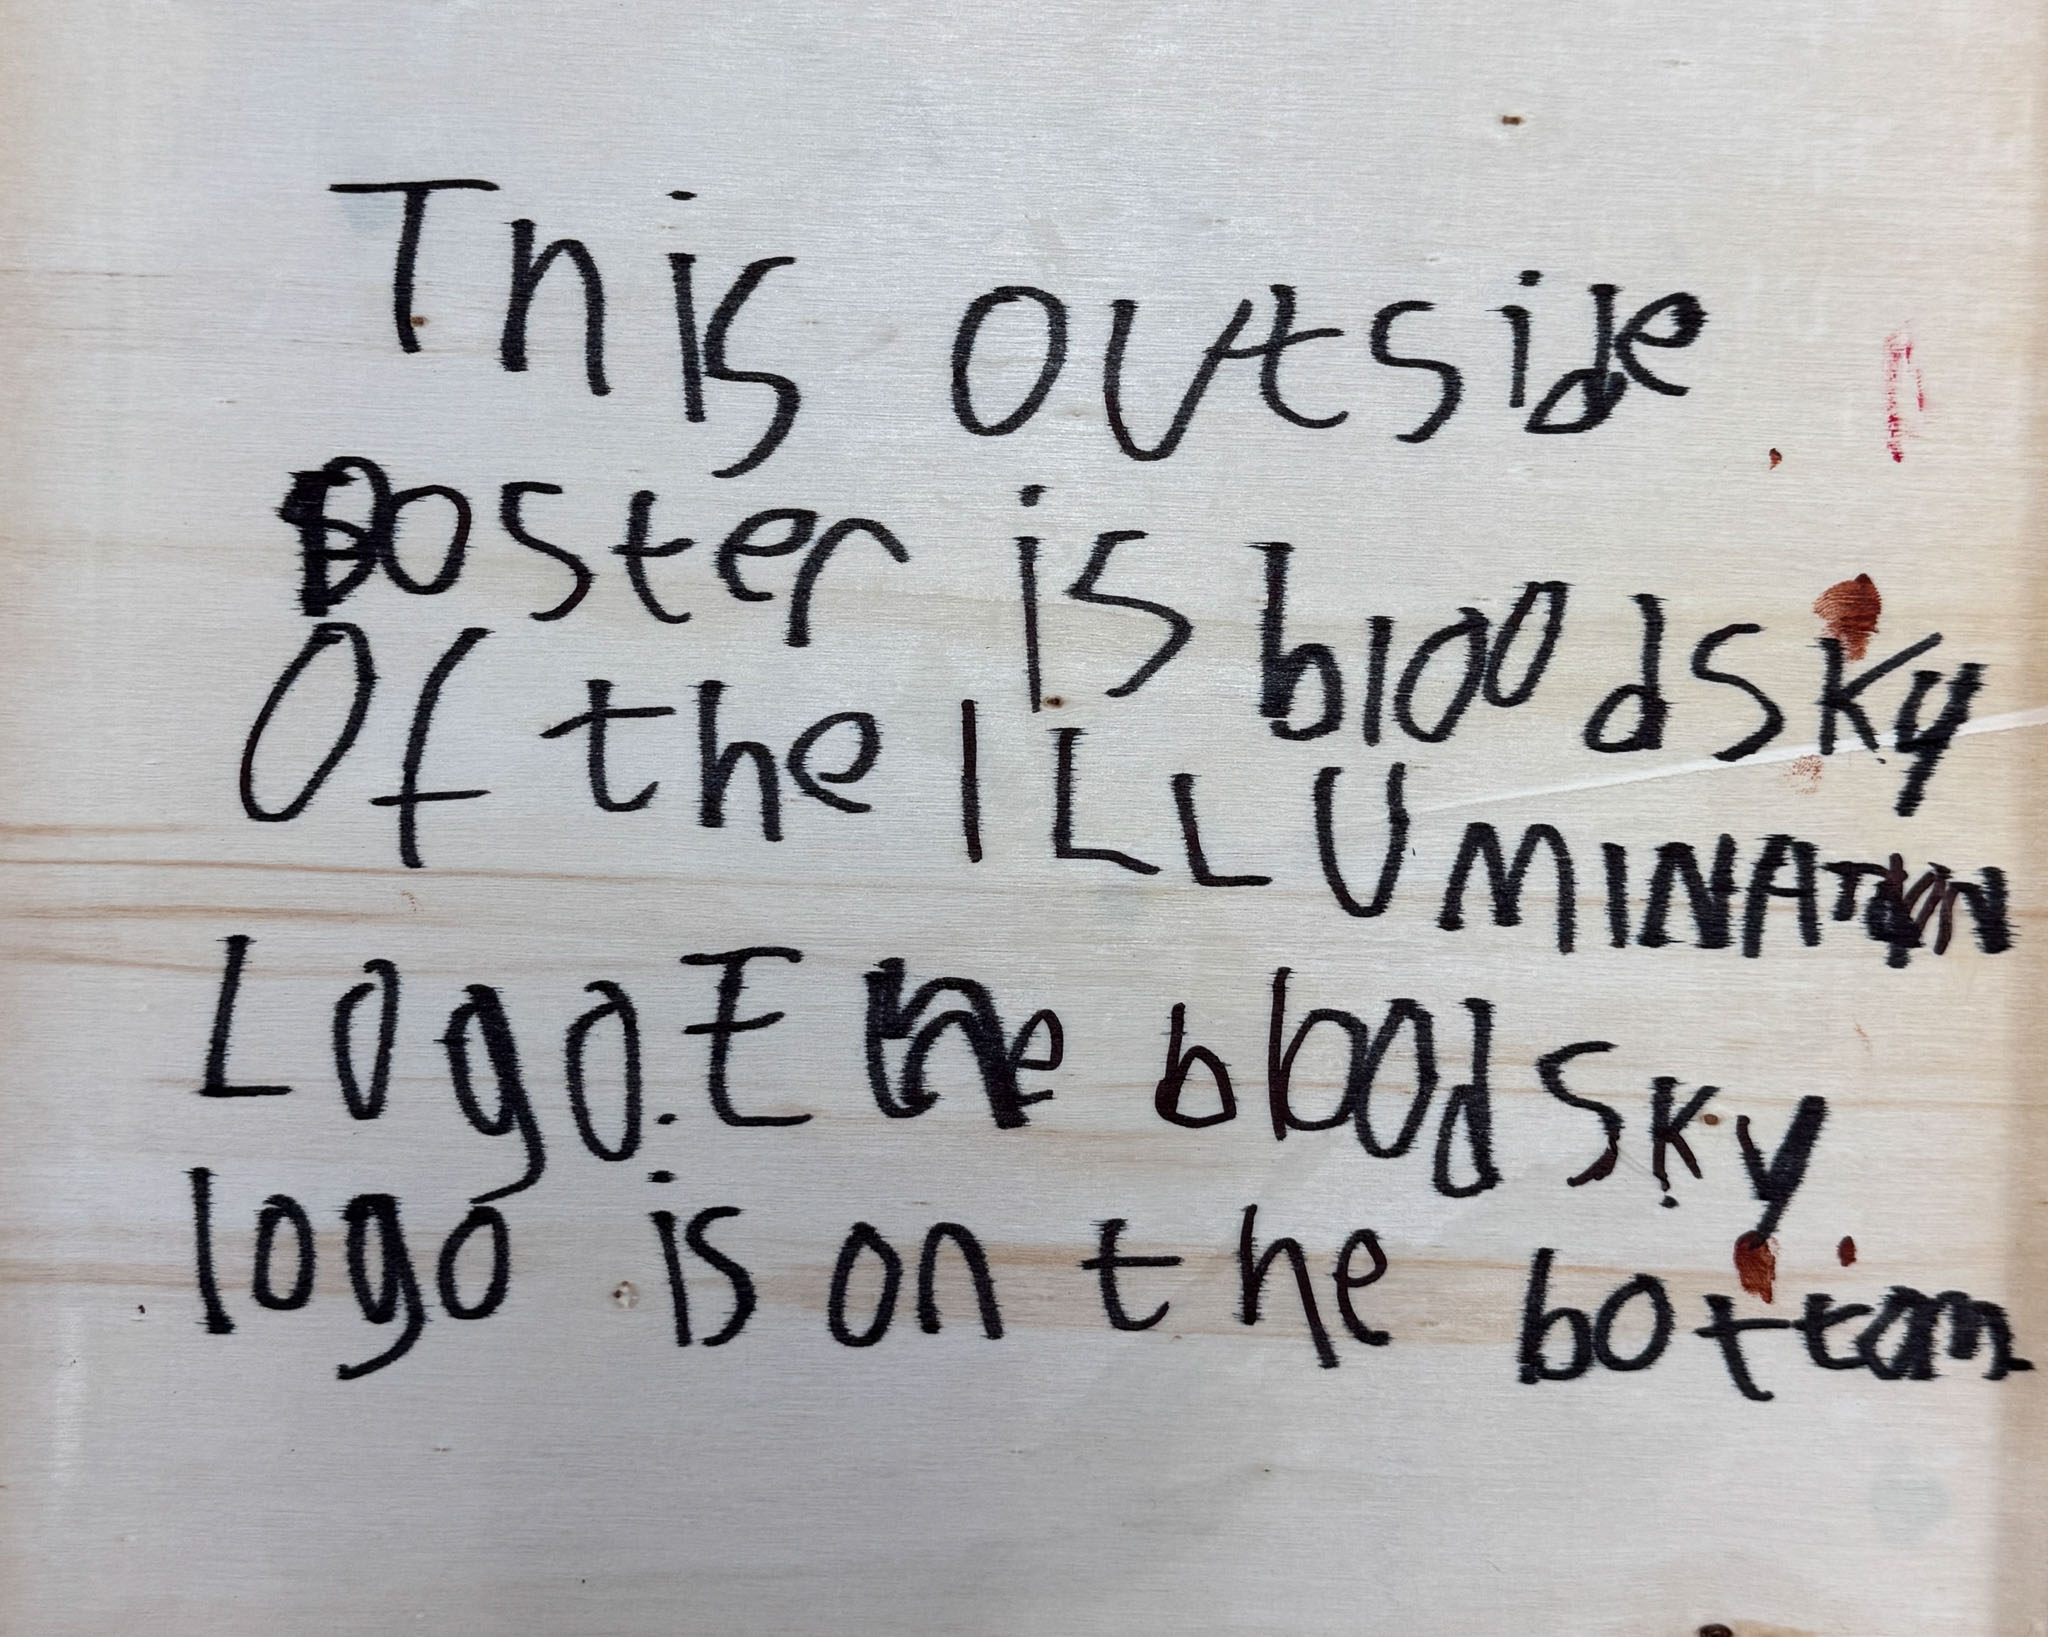 This outside
Poster is bloodsky
Of the ILLUMINATION
Logo. E the blood sky
logo is on the bottom